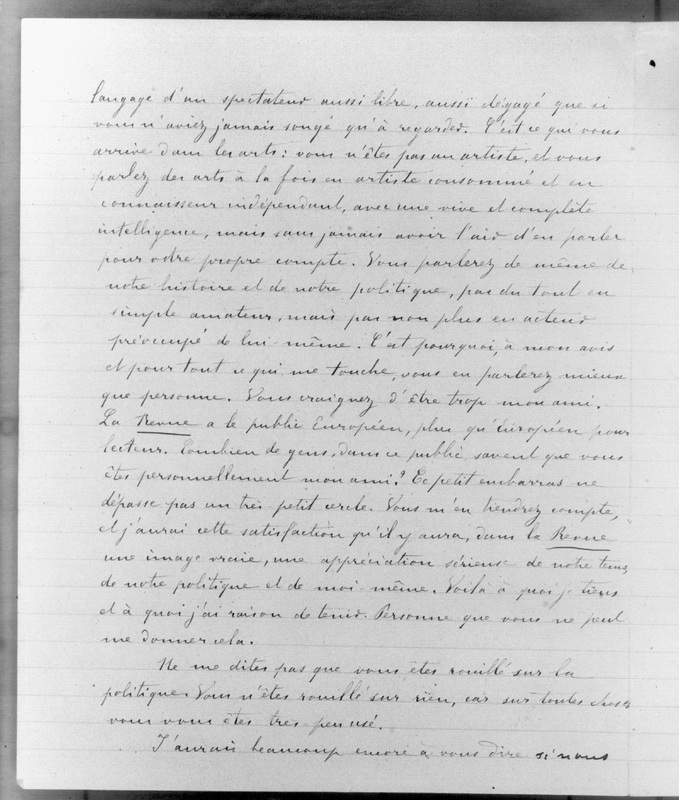 langage d'un spectateur aussi libre, aussi dégagé que si
vous n'aviez jamais songé qu'à regarder. C'est ce qui vous
arrive dans les arts : vous n'êtes pas un artiste, et vous
parlez des arts à la fois en artiste consommé et en
connaisseur indépendant, avec une vive et complète
intelligence, mais sans jamais avoir l'air d'en parler
pour votre propre compte. Vous parlerez de même de
notre histoire et de notre politique, pas du tout en
simple amateur, mais pas non plus en acteur
préoccupé de lui-même. C'est pourquoi, à mon avis
et pour tout ce qui me touche, vous en parlerez mieux
que personne. Vous craignez d'être trop mon ami.
La Revue a le public Européen, plus qu'Européen pour
lecteur. Combien de gens, dans ce public, savent que vous
êtes personnellement mon ami ? Ce petit embarras ne
dépasse pas un très petit cercle. Vous m'en tiendrez compte,
et j'aurai cette satisfaction qu'il y aura, dans la Revue
une image vraie, une appréciation sérieuse de notre temps,
de notre politique et de moi-même. Voilà à quoi je tiens
et à quoi j'ai raison de tenir. Personne que vous ne peut
me donner cela.
Ne me dites pas que vous êtes rouillé sur la
politique. Vous n'êtes rouillé sur rien, car sur toutes choses
vous vous êtes très peu usé.
J'aurais beaucoup encore à vous dire si nous